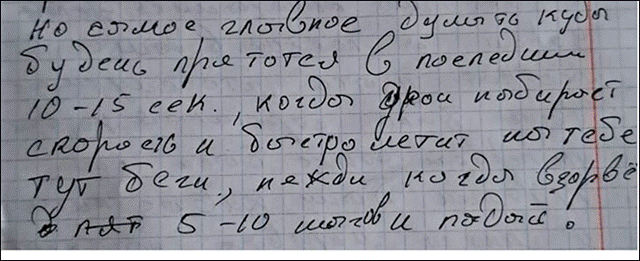 но самое главное думать куды
будешь прятотся в последнии
10-15 сек., когды дрон нобироет
скорость и быстро летит но тебе
тут беги, нежди когды взорвё
5-10 шогов и подый.